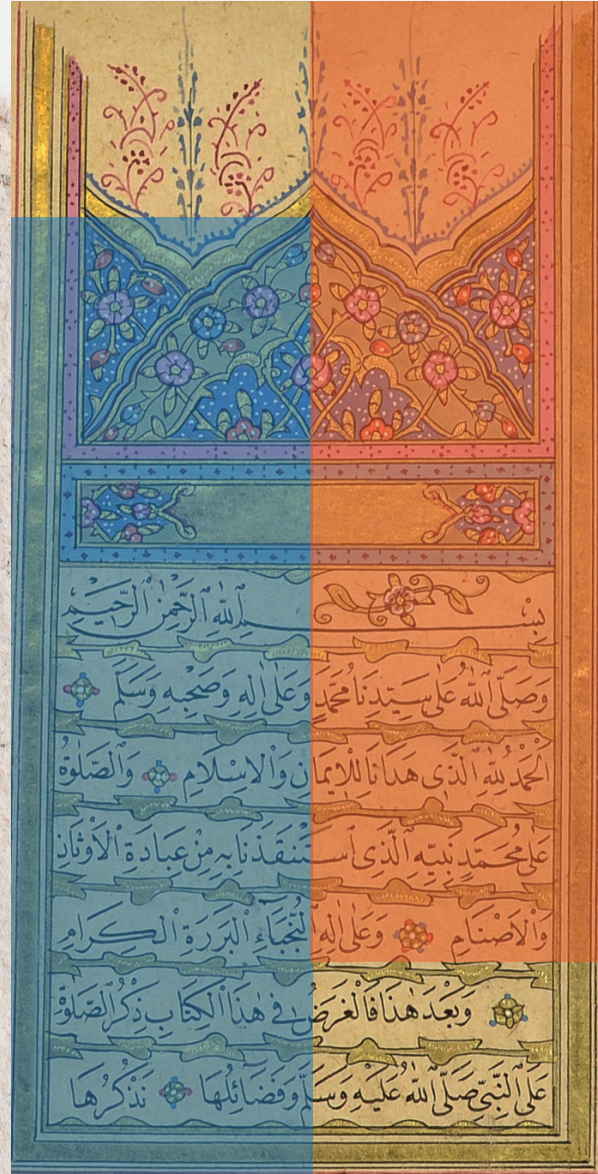 بِسْمِ اللّٰهِ الرَّحْمٰنِ الرَّحِيْمِ
وَصَلَّى اللّٰهُ عَلٰى سَيِّدِنَا مُحَمَّدٍ وَعَلٰى اٰلِهِ وَصَحْبِهِ وَسَلَّمَ
اَلْحَمْدُ لِلّٰهِ الَّذِى هَدَانَا لِلْاِيمَانِ وَالْاِسْلَامِ وَالصَّلٰوةُ
عَلٰى مُحَمَّدٍ نَبِيِّهِ الَّذِى اسْتَنْقَذَنَا بِهِ مِنْ عِبَادَةِ الْاَوْثَانِ
وَالْاَصْنَامِ وَعَلٰى اٰلِهِ النُّجَبَاءِ الْبَرَرَةِ الْكِرَامِ
وَبَعْدَ هٰذَا فَالْغَرَضُ فِى هٰذَا الْكِتَابِ ذِكْرُ الصَّلٰوةِ
عَلَى النَّبِىِّ صَلَّى اللّٰهُ عَلَيْهِ وَسَلَّمَ وَفَضَائِلُهَا نَذْكُرُهَا